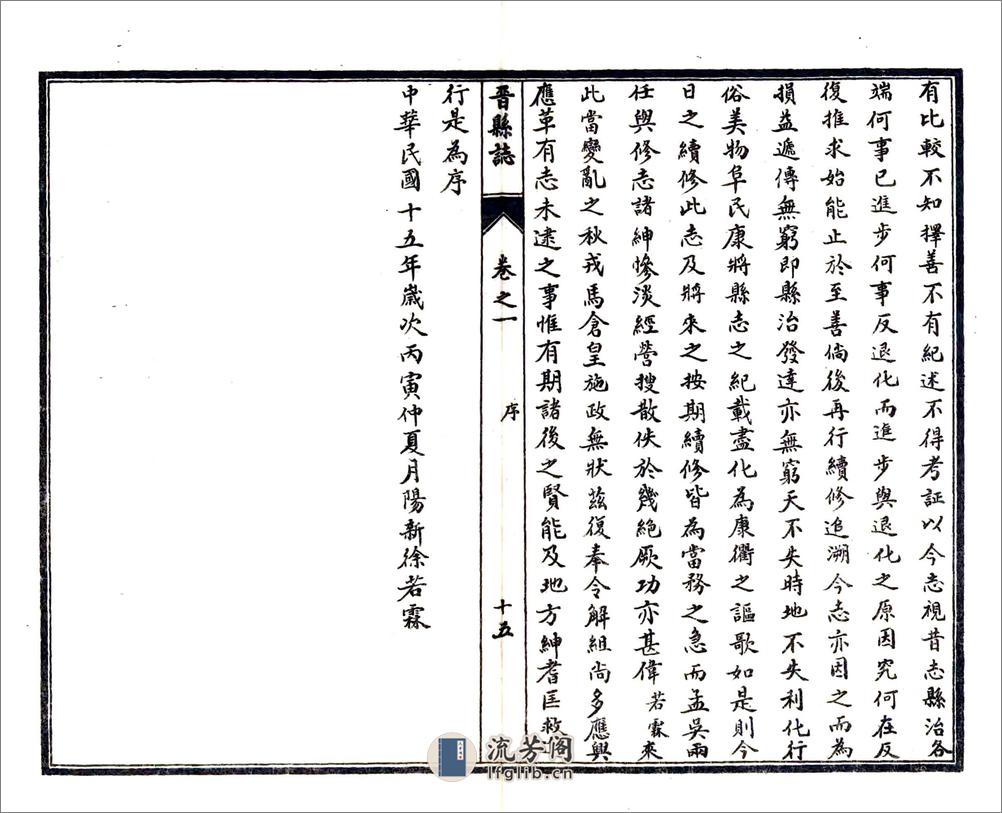 有比較不知擇善不有紀述不得考証以今志視昔志縣治各
端何事已進步何事反退化而進步與退化之原因究何在反
復推求始能止於至善倘後再行續修追溯今志亦因之而為
損益遞傳無窮即縣治發達亦無窮天不失時地不失利化行
俗美物阜民康將縣志之紀載盡化為康衢之謳歌如是則今
日之續修此志及將來之按期續修皆為當務之急而孟吳兩
任與修志諸紳慘淡經營搜散佚於幾絕厥功亦甚偉若霖來
此當變亂之秋戎馬倉皇施政無狀茲復奉令解組尚多應興
應革有志未逮之事惟有期諸後之賢能及地方紳耆匡救
晉縣誌
卷之一
序
十五
行是為序
中華民國十五年歲次丙寅仲夏月陽新徐若霖
流芳閣
lfglib.cn